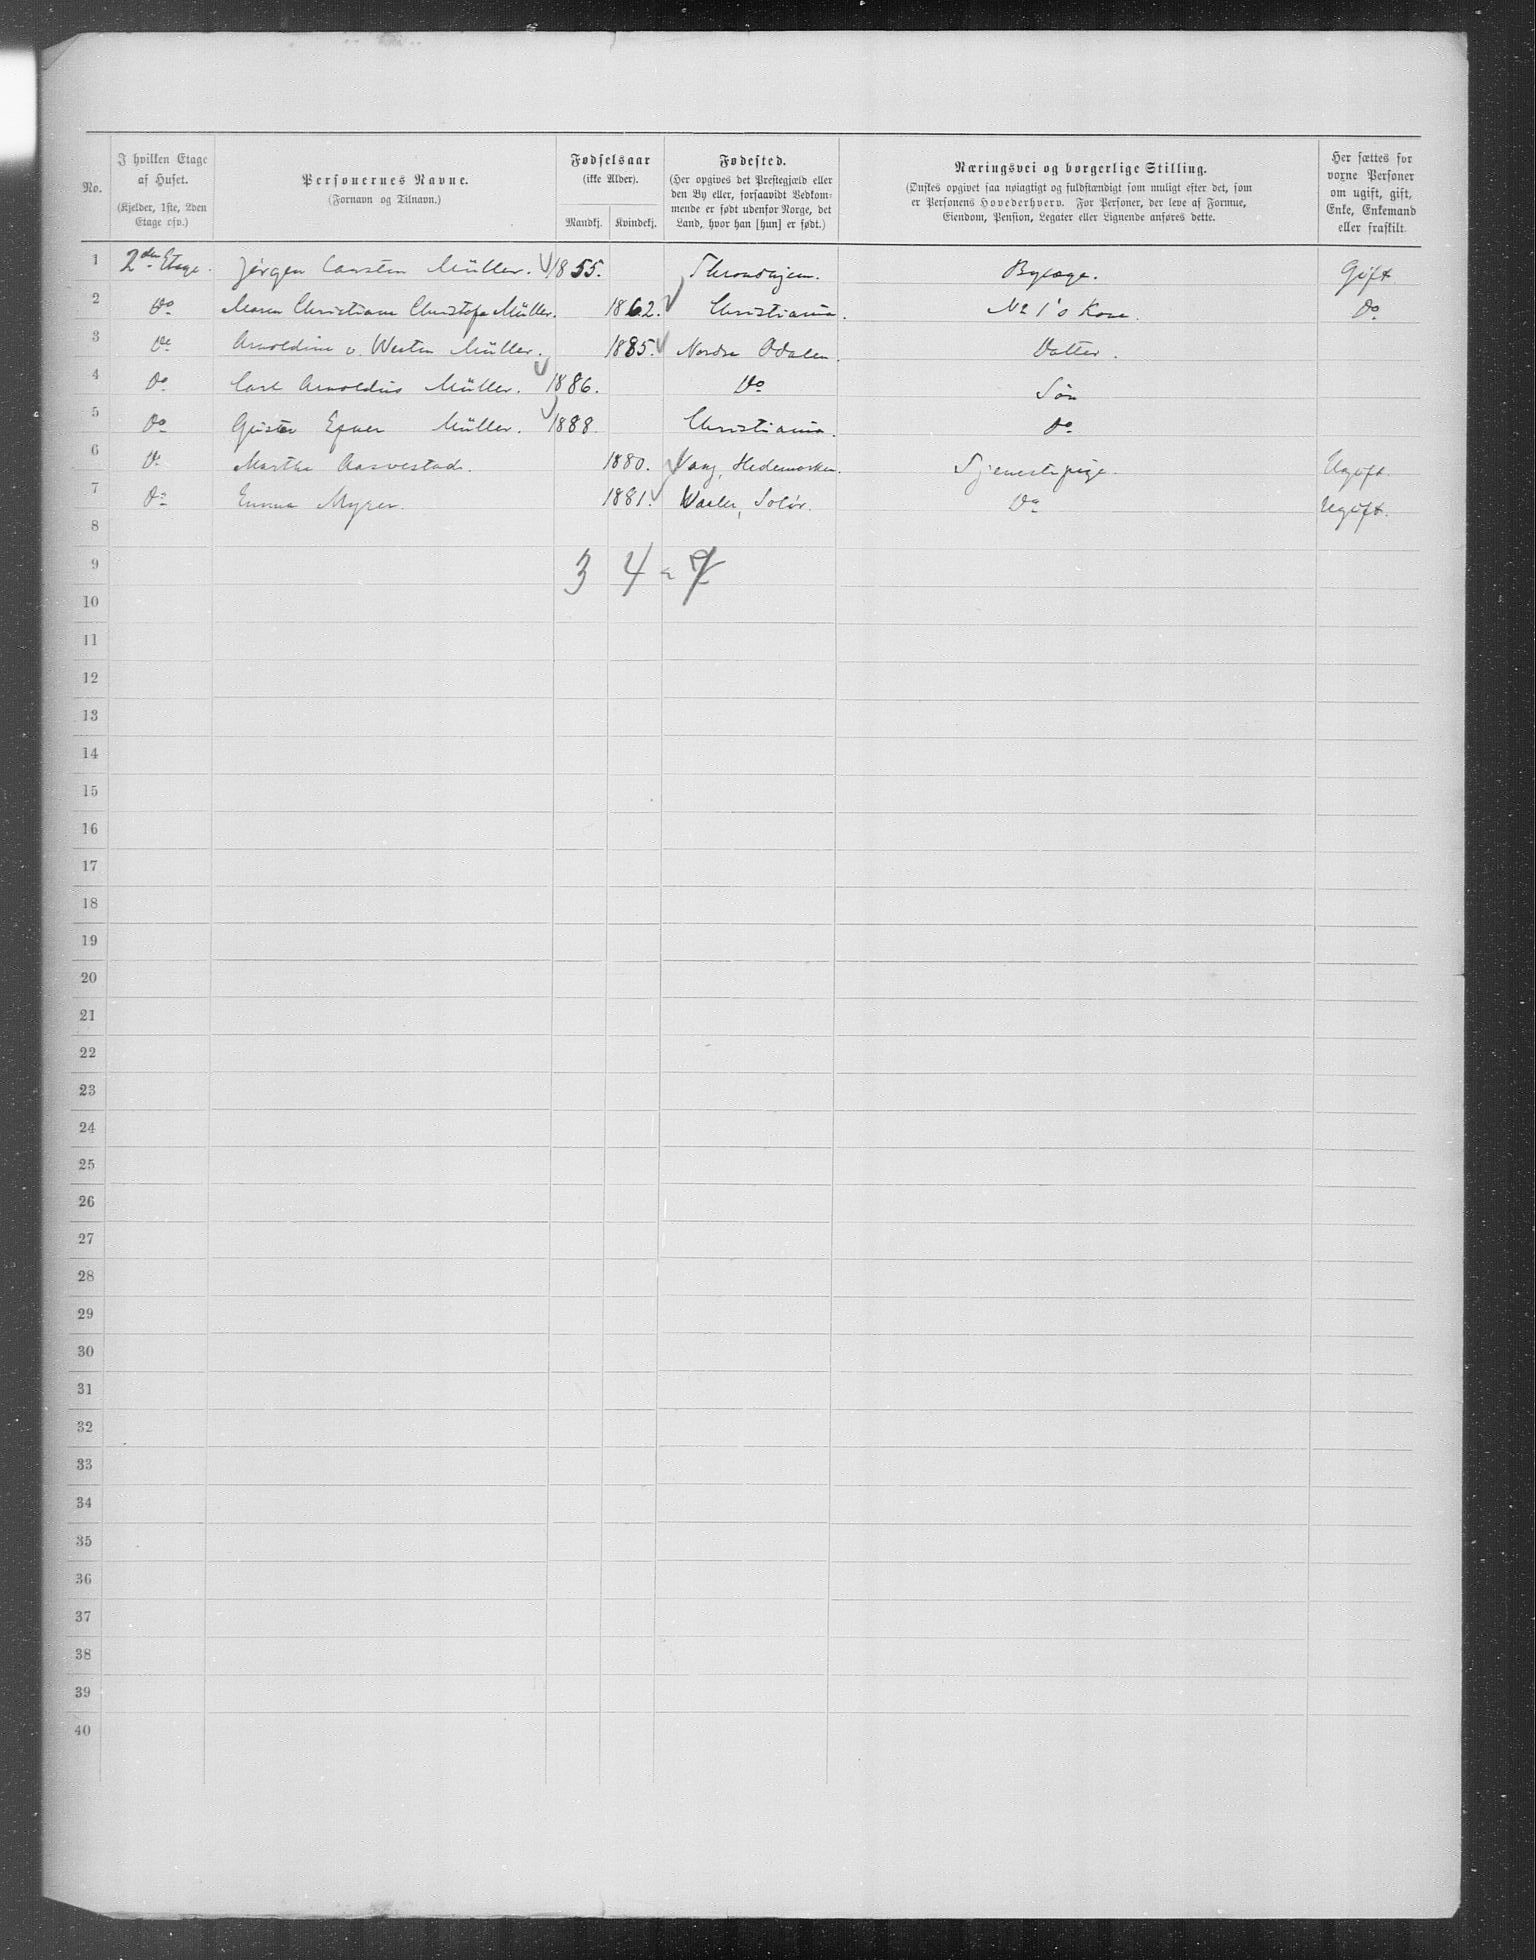 No.
I hvilken Etage
af Huset.
(Kjelder, 1ste, 2den
Etage osv.)
Personernes Navne.
(Fornavn og Tilnavn.)
Fødselsaar
(ikke Alder).
Mandkj. Kvindekj.
Fødested.
(Her opgives det Prestegjæld eller
den By eller, forsaavidt Vedkom-
mende er født udenfor Norge, det
Land, hvor han [hun] er født.)
Næringsvei og borgerlige Stilling.
(Ønskes opgivet saa nøiagtigt og fuldstændigt som muligt efter det, som
er Personens Hovederhverv. For Personer, der leve af Formue,
Eiendom, Pension, Legater eller Lignende anføres dette.
Her sættes for
voxne Personer
om ugift, gift,
Enke, Enkemand
eller fraskilt.
1 2den Etage. Jørgen Carsten Müller. 1855. Throndhjem. Bylæge. Gift
2 Do Maren Christiane Müller. 1862. Christiania. No 1's Kone. Do
3 Do Arnoldine v. Westen Müller. 1885. Nordre Odalen. Datter.
4 Do Carl Arnoldus Müller. 1886. Do Søn
5 Do Gustav Müller. 1888. Christiania. Do
6 Do Martha Aasvestad. 1880. Vang, Hedemarken. Tjenestepige. Ugift.
7 Do Emma Myrer. 1881. Vaaler, Solør. Do Ugift.
8
9 3 4 = 7
10
11
12
13
14
15
16
17
18
19
20
21
22
23
24
25
26
27
28
29
30
31
32
33
34
35
36
37
38
39
40